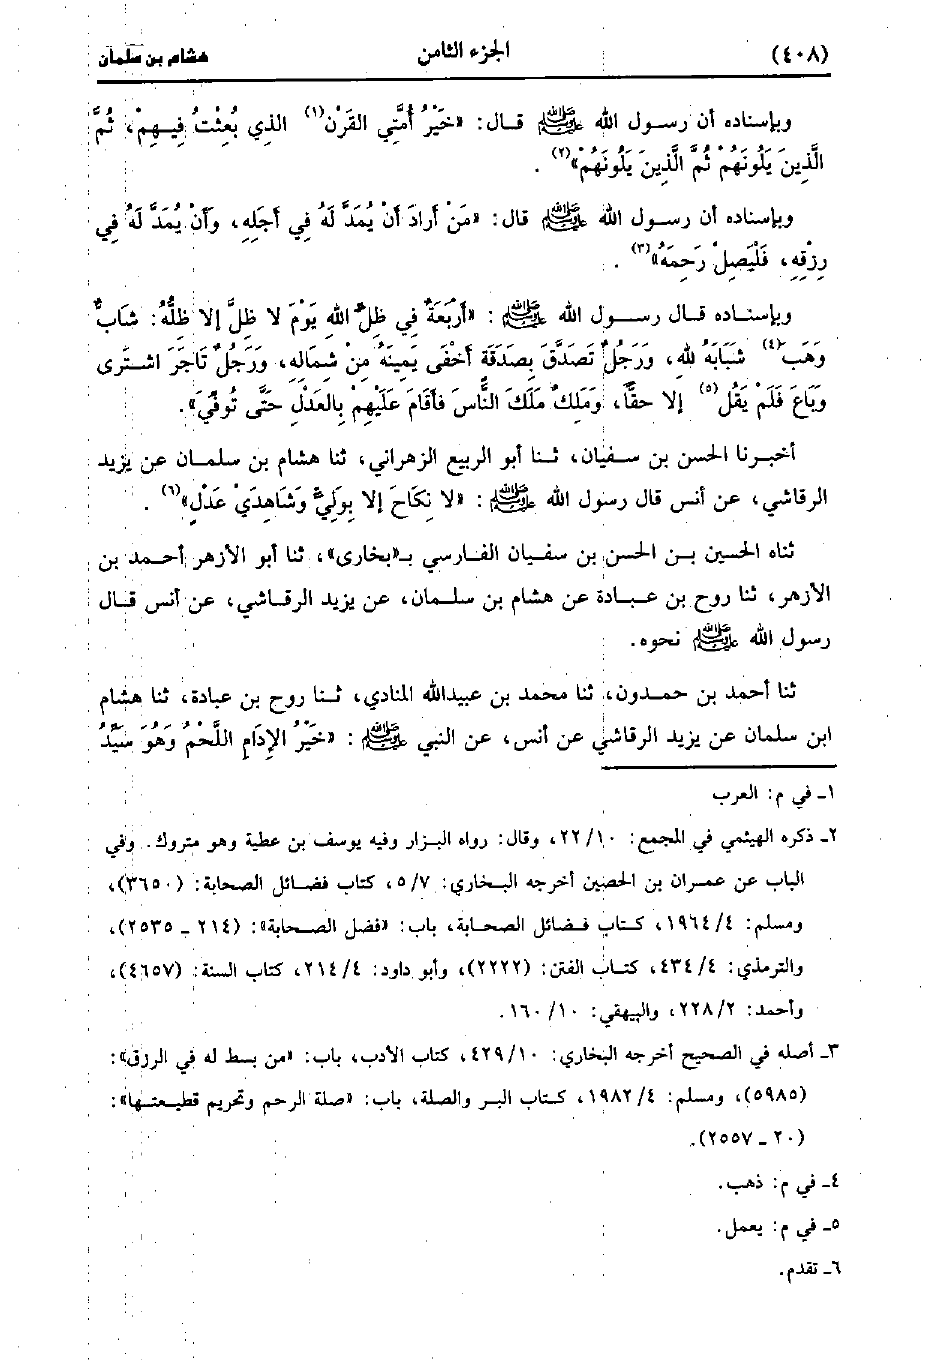 (٤٠٨) الجزء الثامن هشام بن سلمان
وبإسناده أن رسول الله ﷺ قال: «خَيْرُ أُمَّتِي القَرْن(١) الذي بُعِثْتُ فِيهِمْ، ثُمَّ
الَّذِينَ يَلُونَهُمْ ثُمَّ الَّذِينَ يَلُونَهُمْ»(٢).
وبإسناده أن رسول الله ﷺ قال: «مَنْ أَرادَ أَنْ يُمَدَّ لَهُ فِي أَجَلِهِ، وَأَنْ يُمَدَّ لَهُ فِي
رِزْقِهِ، فَلْيَصِلْ رَحِمَهُ»(٣).
وبإسناده قال رسول الله ﷺ : «أَرْبَعَةٌ فِي ظِلِّ اللهِ يَوْمَ لا ظِلَّ إلا ظِلُّهُ: شَابٌّ
وَهَبَ(٤) شَبَابَهُ للهِ، وَرَجُلٌ تَصَدَّقَ بِصَدَقَةٍ أَخْفَى يَمِينَهُ مِنْ شَمَالِهِ، وَرَجُلٌ تَاجَرَ اشْتَرى
وَبَاعَ فَلَمْ يَقُل(٥) إلا حقّاً، وَمَلِكٌ مَلَكَ النَّاسَ فأقَامَ عَلَيْهِمْ بِالعَدْلِ حَتَّى تُوفِّيَ».
أخبرنا الحسن بن سفيان، ثنا أبو الربيع الزهراني، ثنا هشام بن سلمان عن يزيد
الرقاشي، عن أنس قال رسول الله ﷺ : «لا نِكَاحَ إلا بِوَلِيٍّ وَشَاهِدَيْ عَدْلٍ»(٦).
ثناه الحسين بن الحسن بن سفيان الفارسي بـ«بخارى»، ثنا أبو الأزهر أحمد بن
الأزهر، ثنا روح بن عبادة عن هشام بن سلمان، عن يزيد الرقاشي، عن أنس قال
رسول الله ﷺ نحوه.
ثنا أحمد بن حمدون، ثنا محمد بن عبيدالله المنادي، ثنا روح بن عبادة، ثنا هشام
ابن سلمان عن يزيد الرقاشي عن أنس، عن النبي ﷺ : «خَيْرُ الإدَامِ اللَّحْمُ وَهُوَ سَيِّدُ
١ـ في م: العرب
٢ـ ذكره الهيثمي في المجمع: ٢٢/١٠، وقال: رواه البزار وفيه يوسف بن عطية وهو متروك. وفي
الباب عن عمران بن الحصين أخرجه البخاري: ٥/٧، كتاب فضائل الصحابة: (٣٦٥٠)،
ومسلم: ١٩٦٤/٤، كتاب فضائل الصحابة، باب: «فضل الصحابة»: (٢١٤ ـ ٢٥٣٥)،
والترمذي: ٤٣٤/٤، كتاب الفتن: (٢٢٢٢)، وأبو داود: ٢١٤/٤، كتاب السنة: (٤٦٥٧)،
وأحمد: ٢٢٨/٢، والبيهقي: ١٦٠/١٠.
٣ـ أصله في الصحيح أخرجه البخاري: ٤٢٩/١٠، كتاب الأدب، باب: «من بسط له في الرزق»:
(٥٩٨٥)، ومسلم: ١٩٨٢/٤، كتاب البر والصلة، باب: «صلة الرحم وتحريم قطيعتها»:
(٢٠ ـ ٢٥٥٧).
٤ـ في م: ذهب.
٥ـ في م: يعمل.
٦ـ تقدم.